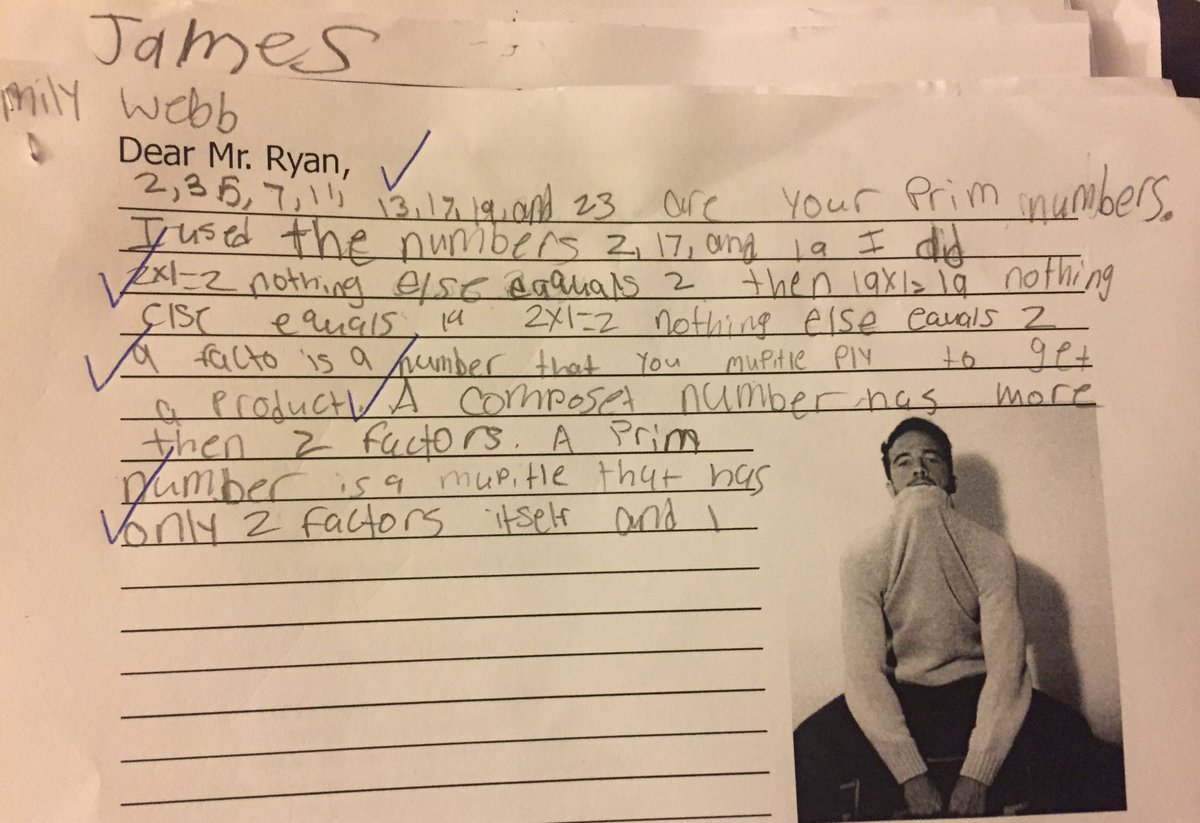 James
mily Webb
Dear Mr. Ryan,
2, 3 5, 7, 11, 13, 17, 19, and 23 are your Prim numbers.
I used the numbers 2, 17, and 19 I did
2x1=2 nothing else eaquals 2 then 19x1=19 nothing
else equals 19 2x1=2 nothing else equals 2
a facto is a number that you mupitle ply to get
a product. A composet number has more
then 2 factors. A Prim
number is a mupitle that has
only 2 factors itself and 1